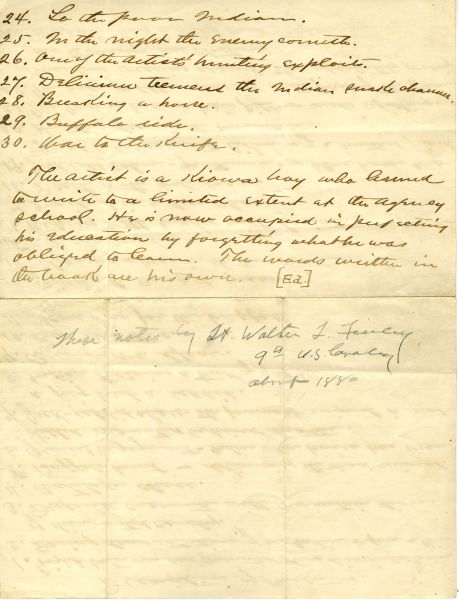 24. Lo the poor Indian.
25. In the night the enemy cometh.
26. One of the Artists' hunting exploits.
27. Delirium tremens the Indian snake charmer.
28. Breaking a horse.
29. Buffalo ride.
30. War to the Knife.
The artist is a Kiowa boy who learned
to write to a limited extent at the agency
school. He is now occupied in perfecting
his education by forgetting what he was
obliged to learn. The words written in
the book are his own. [Ed.]
These notes by Lt. Walter L. Finley
9th U.S. Cavalry
about 1880